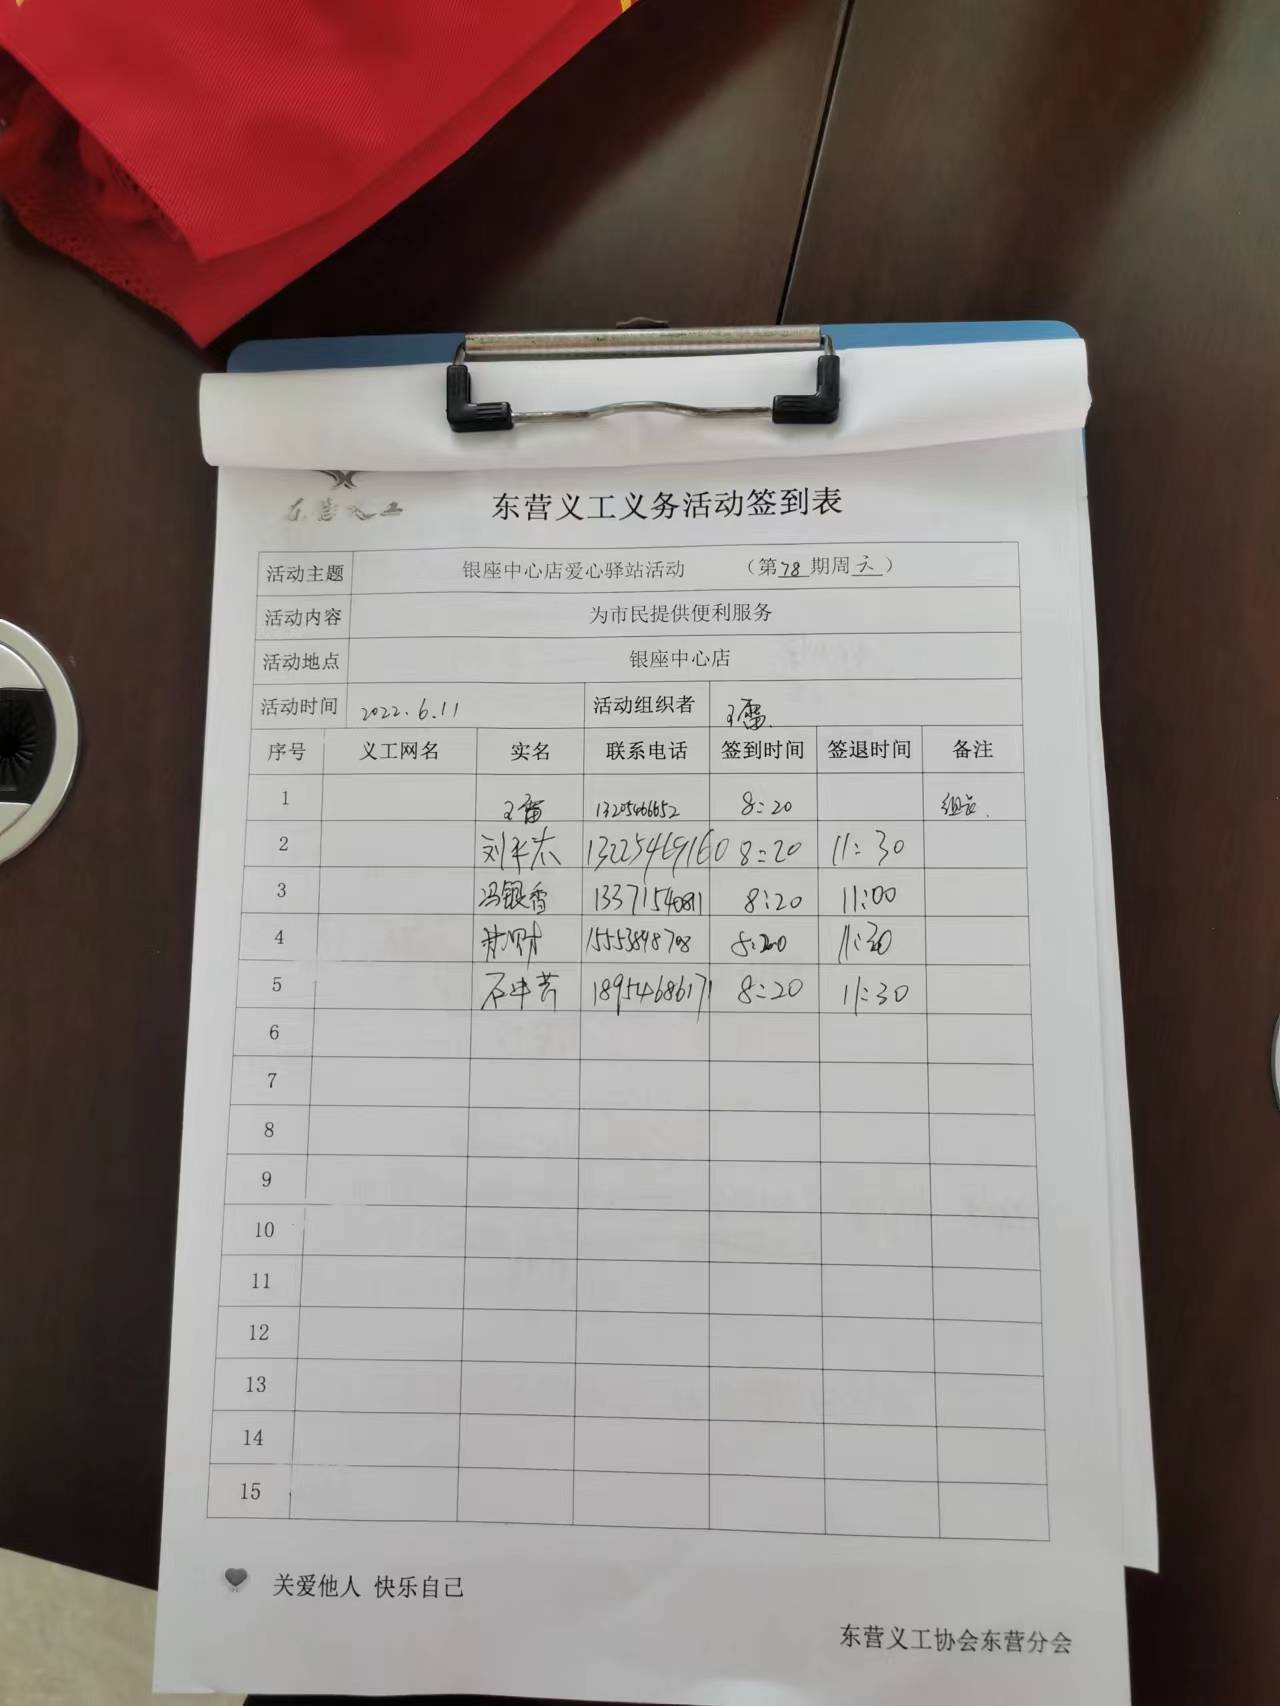 东营义工
东营义工义务活动签到表
活动主题 银座中心店爱心驿站活动 （第78期周六）
活动内容 为市民提供便利服务
活动地点 银座中心店
活动时间 2022.6.11 活动组织者 王雷
序号 义工网名 实名 联系电话 签到时间 签退时间 备注
1 王雷 13205466652 8:20 组长
2 13225469160 8:20 11:30
3 冯银香 13371540811 8:20 11:00
4 15553848708 8:20 11:30
5 18954686171 8:20 11:30
6
7
8
9
10
11
12
13
14
15
关爱他人 快乐自己
东营义工协会东营分会